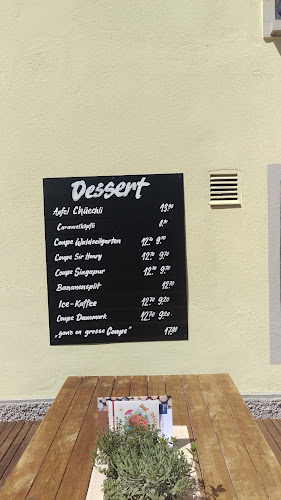 Dessert
Apfel Chüechli 13.50
Caramelköpfli 8.50
Coupe Waldseilgarten 12.70 9.70
Coupe Sir Henry 12.70 9.70
Coupe Singapur 12.70 9.70
Bananensplit 12.70
Ice-Kaffee 12.70 9.20
Coupe Danemark 12.70 9.20
„ganz en grosse Coupe" 17.00